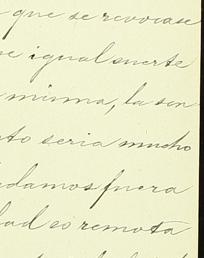 que se revocase
igual suerte
misma, la sen
seria mucho
damos fuera
dad es remota